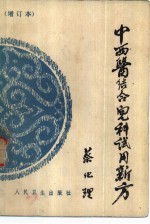 (增订本)
中西醫结合兒科试用新方
蔡化理
人民卫生出版社